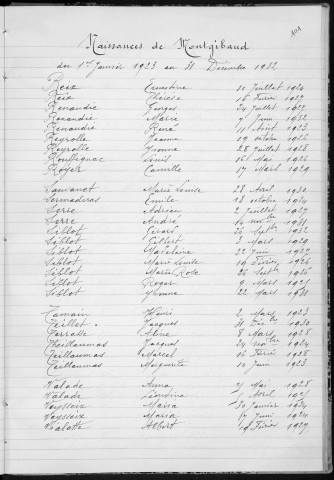 101
Naissances de Montgibaud
du 1er Janvier 1923 au 31 Décembre 1932
Reix Ernestine Juillet 1924
Reix Thérèse 16 Février 1927
Renaudie Juillet 1927
Renaudie Marie 7 Juin 1932
Renaudie René 11 Août 1923
Reyrolle Jeanne octobre 1926
Reyrolle Yvonne 28 Juillet 1928
Roubignac Louis 16 Mai 1926
Royer Camille 17 Mars 1929
Sauvanet Marie Louise 28 Avril 1930
Sermadiras Emile 18 octobre 1924
Serre Adrien 2 Juillet 1927
Serre André 1931
Siblot Gérard 26 Septbre 1932
Siblot Gilbert 2 Mars 1929
Siblot Madeleine 22 Juin 1922
Siblot Marie Louise 19 Février 1926
Siblot Marie Rose 26 Septbre 1926
Siblot Roger 9 Mars 1925
Siblot Yvonne 22 Mars 1931
Tamain Henri 2 Mars 1923
Teillet Jacques 31 1930
Terrade Aline 8 Mars 1928
Theillaumas Jacques 24 novbre 1924
Teillaumas Marcel 16 Février 1928
Teillaumas Marguerite 10 Juin 1923
Valade Anna Mai 1928
Valade Léontine Avril 1925
Veysseix Maria 30 Janvier 1924
Veysseix Maria Juin 1924
Vialotte Albert 19 Février 1929